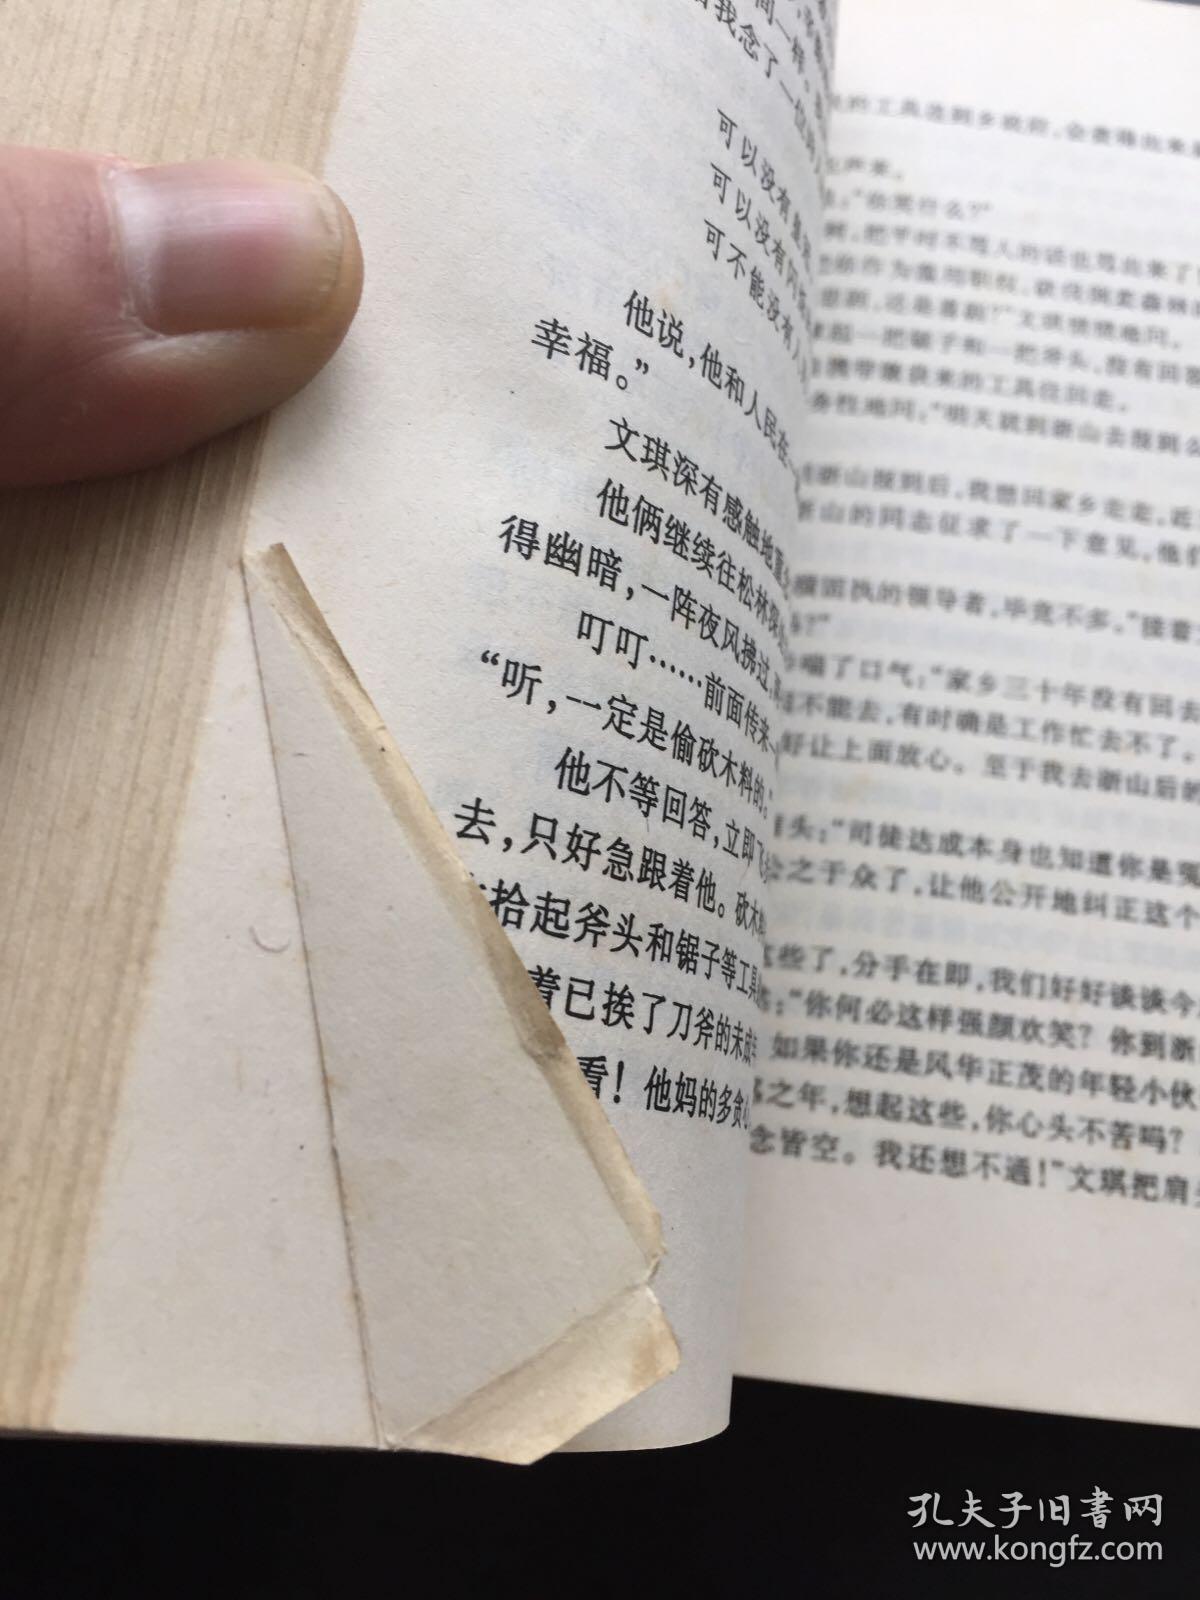 间一样。
我念了一位诗人
可以没有皇
可以没有闪
可不能没有人
他说，他和人民在一
幸福。”
文琪深有感触地重
他俩继续往松林深
得幽暗，一阵夜风拂过，
叮叮……前面传来一
“听，一定是偷砍木料的。”
他不等回答，立即飞
去，只好急跟着他。砍木
拾起斧头和锯子等工具
着已挨了刀斧的未成
看！他妈的多贪心
的工具连到乡政府，会
声来。
：“你笑什么？”
树，把平时不骂人的话也骂出来了
你作为滥用职权，砍伐
悲剧，还是喜剧？”文琪愤愤地问。
起一把锯子和一把斧头，没有回答
携带缴获来的工具往回走。
地问：“明天就到浙山去报到么
浙山报到后，我想回家乡走走，近
山的同志征求了一下意见，他们
固执的领导者，毕竟不多。”接着
？”
喘了口气：“家乡三十年没有回去
不能去，有时确是工作忙去不了。
好让上面放心。至于我去浙山后的
头：“司徒达成本身也知道你是冤
之于众了，让他公开地纠正这个
些了，分手在即，我们好好谈谈今
：“你何必这样强颜欢笑？你到浙
如果你还是风华正茂的年轻小伙
之年，想起这些，你心头不苦吗？
念皆空。我还想不通！”文琪把肩
孔夫子旧书网
www.kongfz.com